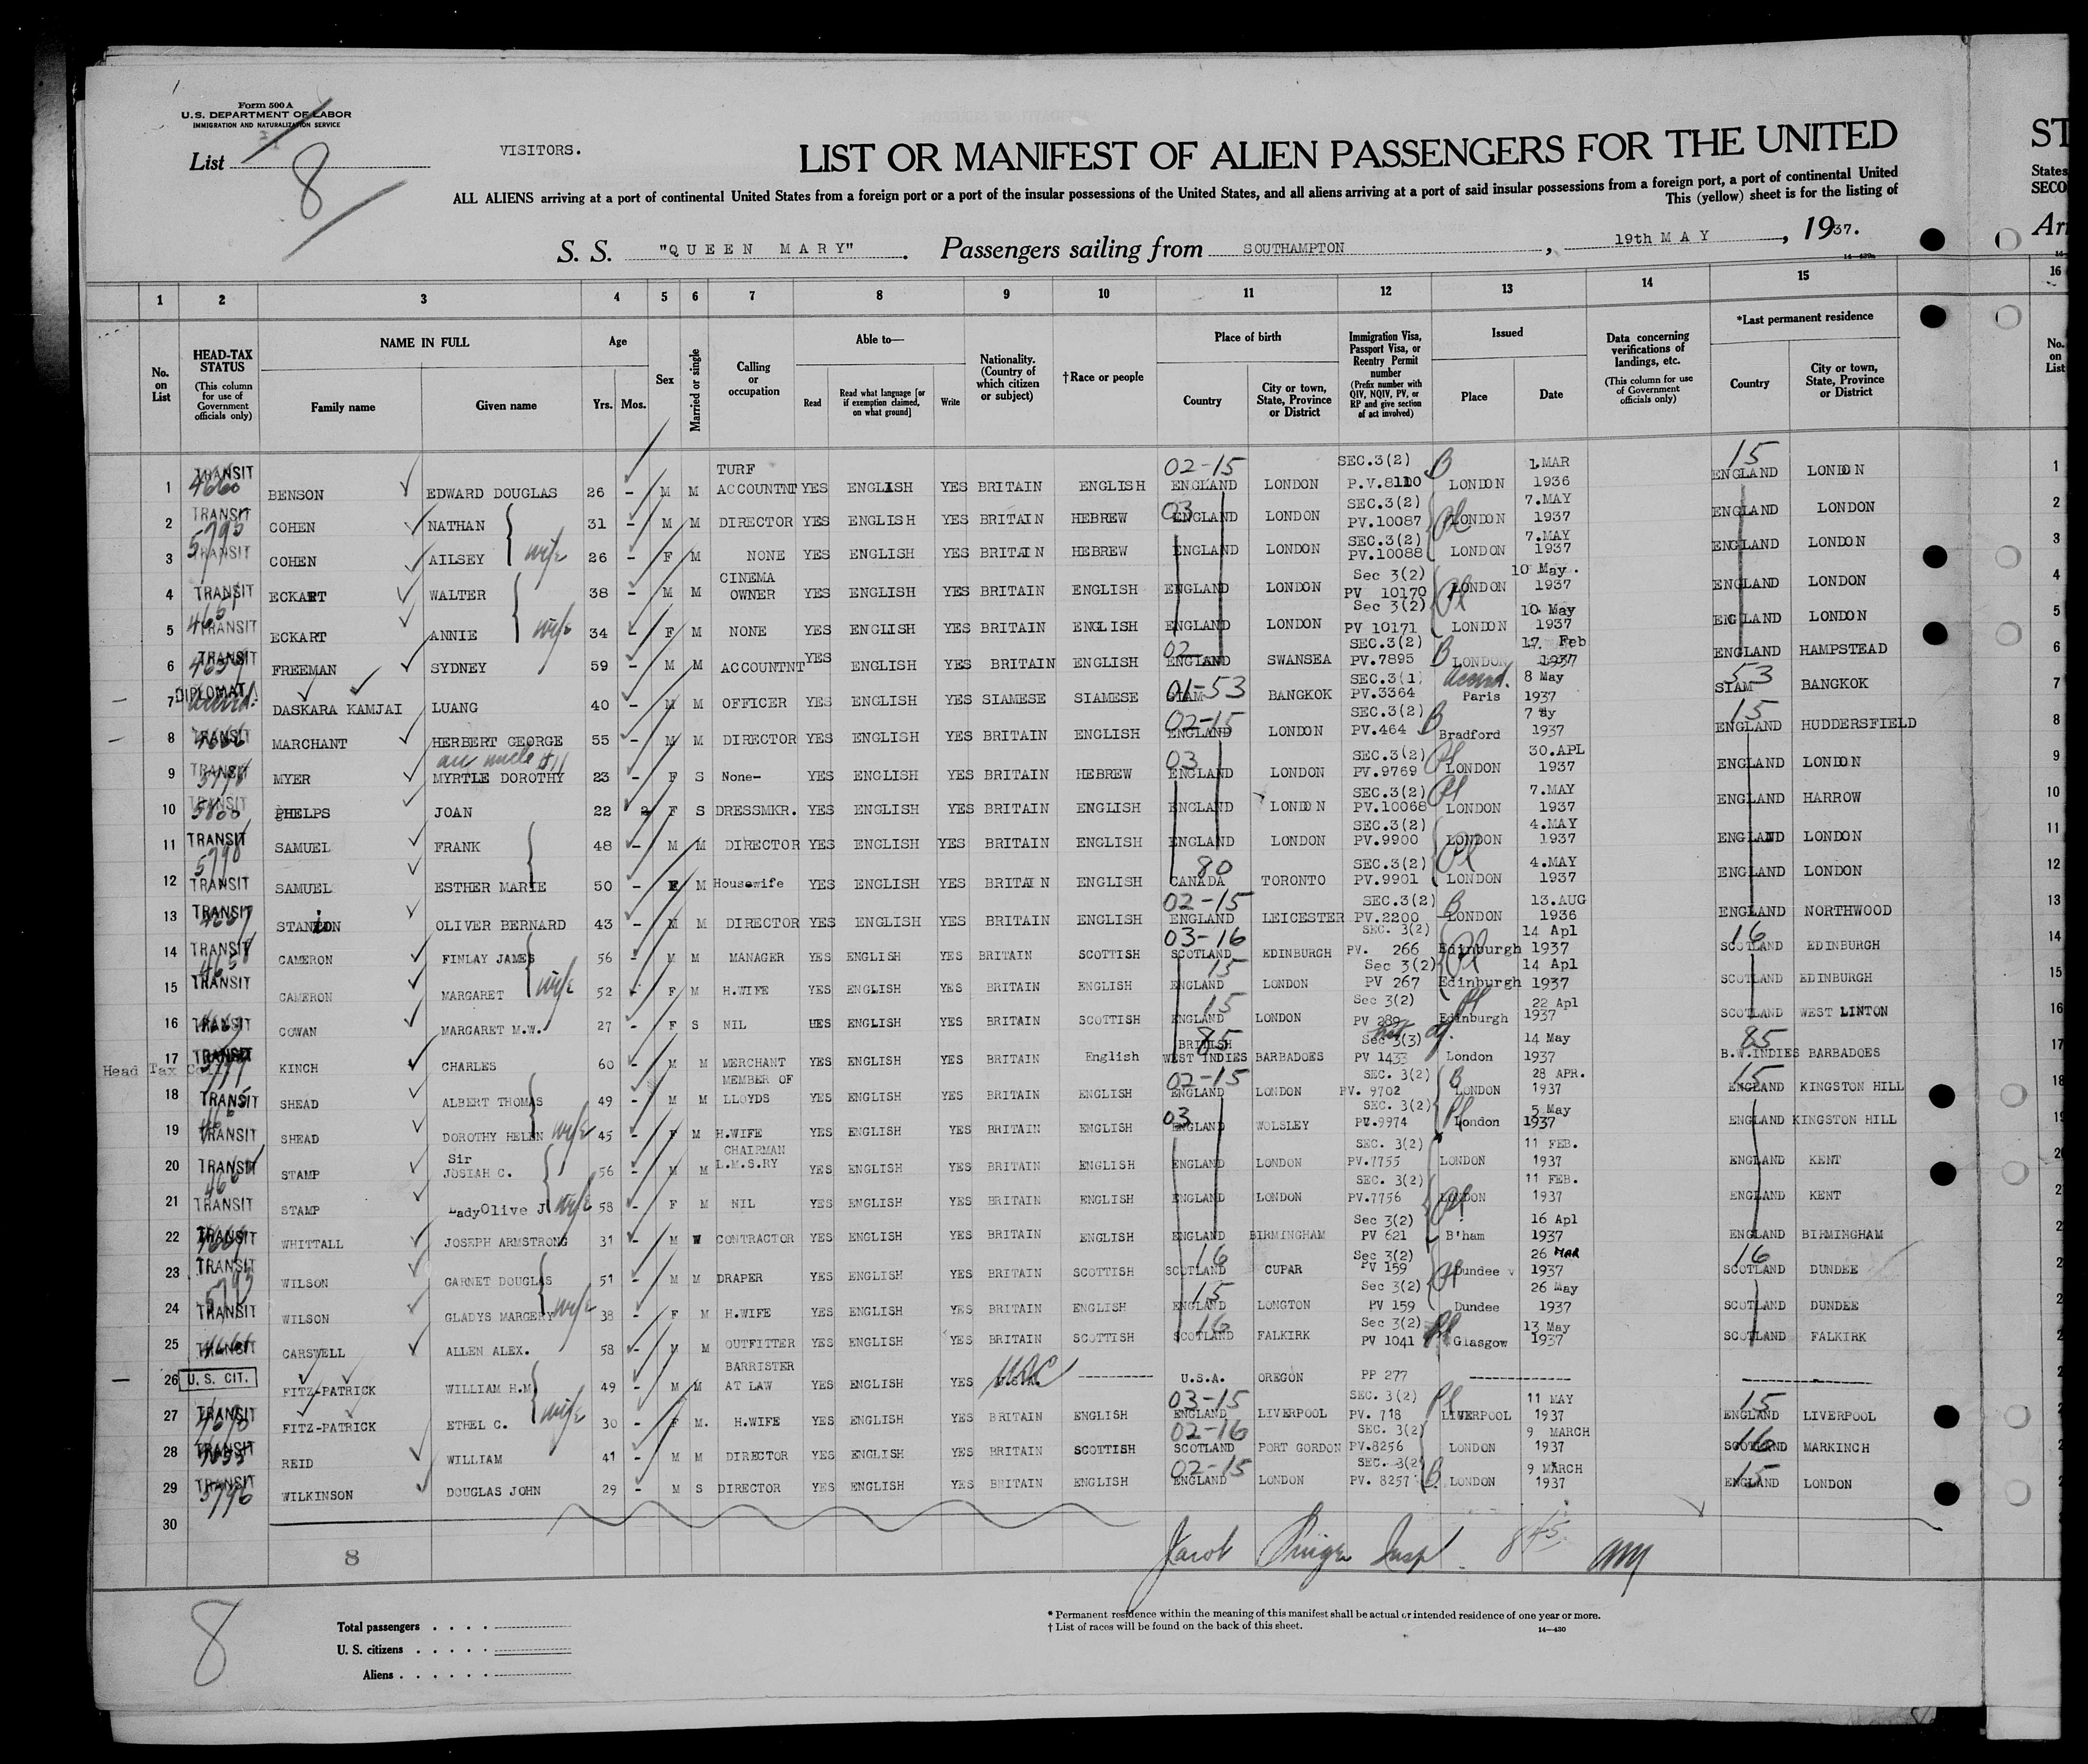 Form 500 A
U.S. DEPARTMENT OF LABOR
IMMIGRATION AND NATURALIZATION SERVICE
List 8
VISITORS.
LIST OR MANIFEST OF ALIEN PASSENGERS FOR THE UNITED
ST
ALL ALIENS arriving at a port of continental United States from a foreign port or a port of the insular possessions of the United States, and all aliens arriving at a port of said insular possessions from a foreign port, a port of continental United
States
This (yellow) sheet is for the listing of
SECO
S. S. "QUEEN MARY". Passengers sailing from SOUTHAMPTON, 19th MAY, 1937.
Arr
1 2 3 4 5 6 7 8 9 10 11 12 13 14 15 16
No. on List
HEAD-TAX STATUS
(This column for use of Government officials only)
NAME IN FULL
Family name
Given name
Age
Yrs. Mos.
Sex
Married or single
Calling or occupation
Able to—
Read
Read what language [or if exemption claimed, on what ground]
Write
Nationality. (Country of which citizen or subject)
†Race or people
Place of birth
Country
City or town, State, Province or District
Immigration Visa, Passport Visa, or Reentry Permit number
(Prefix number with QIV, NQIV, PV, or RP and give section of act involved)
Issued
Place
Date
Data concerning verifications of landings, etc.
(This column for use of Government officials only)
*Last permanent residence
Country
City or town, State, Province or District
No. on List
1 TRANSIT BENSON EDWARD DOUGLAS 26 - M M TURF ACCOUNTNT YES ENGLISH YES BRITAIN ENGLISH 02-15 ENGLAND LONDON SEC.3(2) P.V.8110 LONDON 1.MAR 1936 15 ENGLAND LONDON 1
2 TRANSIT COHEN NATHAN 31 - M M DIRECTOR YES ENGLISH YES BRITAIN HEBREW 03 ENGLAND LONDON SEC.3(2) PV.10087 LONDON 7.MAY 1937 ENGLAND LONDON 2
3 TRANSIT COHEN AILSEY wife 26 - F M NONE YES ENGLISH YES BRITAIN HEBREW ENGLAND LONDON SEC.3(2) PV.10088 LONDON 7.MAY 1937 ENGLAND LONDON 3
4 TRANSIT ECKART WALTER 38 - M M CINEMA OWNER YES ENGLISH YES BRITAIN ENGLISH ENGLAND LONDON Sec 3(2) PV 10170 LONDON 10 May. 1937 ENGLAND LONDON 4
5 TRANSIT ECKART ANNIE wife 34 - F M NONE YES ENGLISH YES BRITAIN ENGLISH ENGLAND LONDON Sec 3(2) PV 10171 LONDON 10 May 1937 ENGLAND LONDON 5
6 TRANSIT FREEMAN SYDNEY 59 - M M ACCOUNTNT YES ENGLISH YES BRITAIN ENGLISH 02 ENGLAND SWANSEA SEC.3(2) PV.7895 LONDON 17. Feb 1937 ENGLAND HAMPSTEAD 6
7 DIPLOMAT DASKARA KAMJAI LUANG 40 - M M OFFICER YES ENGLISH YES SIAMESE SIAMESE 01-53 SIAM BANGKOK SEC.3(1) PV.3364 Paris 8 May 1937 53 SIAM BANGKOK 7
8 TRANSIT MARCHANT HERBERT GEORGE 55 - M M DIRECTOR YES ENGLISH YES BRITAIN ENGLISH 02-15 ENGLAND LONDON SEC.3(2) PV.464 Bradford 7 May 1937 15 ENGLAND HUDDERSFIELD 8
9 TRANSIT MYER MYRTLE DOROTHY 23 - F S None- YES ENGLISH YES BRITAIN HEBREW 03 ENGLAND LONDON SEC.3(2) PV.9769 LONDON 30.APL 1937 ENGLAND LONDON 9
10 TRANSIT PHELPS JOAN 22 F S DRESSMKR. YES ENGLISH YES BRITAIN ENGLISH ENGLAND LONDON SEC.3(2) PV.10068 LONDON 7.MAY 1937 ENGLAND HARROW 10
11 TRANSIT SAMUEL FRANK 48 - M M DIRECTOR YES ENGLISH YES BRITAIN ENGLISH ENGLAND LONDON SEC.3(2) PV.9900 LONDON 4.MAY 1937 ENGLAND LONDON 11
12 TRANSIT SAMUEL ESTHER MARIE 50 - F M Housewife YES ENGLISH YES BRITAIN ENGLISH 80 CANADA TORONTO SEC.3(2) PV.9901 LONDON 4.MAY 1937 ENGLAND LONDON 12
13 TRANSIT OLIVER BERNARD 43 - M M DIRECTOR YES ENGLISH YES BRITAIN ENGLISH 02-15 ENGLAND LEICESTER SEC.3(2) PV.2200 LONDON 13.AUG 1936 ENGLAND NORTHWOOD 13
14 TRANSIT CAMERON FINLAY JAMES 56 - M M MANAGER YES ENGLISH YES BRITAIN SCOTTISH 03-16 SCOTLAND EDINBURGH SEC. 3(2) PV. 266 Edinburgh 14 Apl 1937 16 SCOTLAND EDINBURGH 14
15 TRANSIT CAMERON MARGARET wife 52 - F M H.WIFE YES ENGLISH YES BRITAIN ENGLISH 15 ENGLAND LONDON Sec 3(2) PV 267 Edinburgh 14 Apl 1937 SCOTLAND EDINBURGH 15
16 TRANSIT COWAN MARGARET M.W. 27 - F S NIL YES ENGLISH YES BRITAIN SCOTTISH 15 ENGLAND LONDON Sec 3(2) PV 289 Edinburgh 22 Apl 1937 SCOTLAND WEST LINTON 16
17 TRANSIT Head Tax KINCH CHARLES 60 - M M MERCHANT YES ENGLISH YES BRITAIN English 85 BRITISH WEST INDIES BARBADOES Sec 3(3) PV 1433 London 14 May 1937 85 B.W.INDIES BARBADOES 17
18 TRANSIT SHEAD ALBERT THOMAS 49 - M M MEMBER OF LLOYDS YES ENGLISH YES BRITAIN ENGLISH 02-15 ENGLAND LONDON SEC. 3(2) PV. 9702 LONDON 28 APR. 1937 15 ENGLAND KINGSTON HILL 18
19 TRANSIT SHEAD DOROTHY HELEN wife 45 - F M H.WIFE YES ENGLISH YES BRITAIN ENGLISH 03 ENGLAND WOLSLEY SEC. 3(2) PV.9974 London 5 May 1937 ENGLAND KINGSTON HILL 19
20 TRANSIT STAMP Sir JOSIAH C. 56 - M M CHAIRMAN L.M.S.RY YES ENGLISH YES BRITAIN ENGLISH ENGLAND LONDON SEC. 3(2) PV.7755 LONDON 11 FEB. 1937 ENGLAND KENT
21 TRANSIT STAMP Lady Olive J wife 58 - F M NIL YES ENGLISH YES BRITAIN ENGLISH ENGLAND LONDON SEC. 3(2) PV.7756 LONDON 11 FEB. 1937 ENGLAND KENT
22 TRANSIT WHITTALL JOSEPH ARMSTRONG 31 - M CONTRACTOR YES ENGLISH YES BRITAIN ENGLISH ENGLAND BIRMINGHAM Sec 3(2) PV 621 B'ham 16 Apl 1937 ENGLAND BIRMINGHAM
23 TRANSIT WILSON GARNET DOUGLAS 51 - M M DRAPER YES ENGLISH YES BRITAIN SCOTTISH 16 SCOTLAND CUPAR Sec 3(2) PV 159 Dundee 26 MAR 1937 16 SCOTLAND DUNDEE
24 TRANSIT WILSON GLADYS MARGERY wife 38 - F M H.WIFE YES ENGLISH YES BRITAIN ENGLISH 15 ENGLAND LONGTON Sec 3(2) PV 159 Dundee 26 May 1937 SCOTLAND DUNDEE
25 TRANSIT CARSWELL ALLEN ALEX. 58 - M M OUTFITTER YES ENGLISH YES BRITAIN SCOTTISH 16 SCOTLAND FALKIRK Sec 3(2) PV 1041 Glasgow 13 May 1937 SCOTLAND FALKIRK
26 U. S. CIT. FITZ-PATRICK WILLIAM H.M 49 - M M BARRISTER AT LAW YES ENGLISH YES U.S.A. U.S.A. OREGON PP 277
27 TRANSIT FITZ-PATRICK ETHEL C. wife 30 - F M. H.WIFE YES ENGLISH YES BRITAIN ENGLISH 03-15 ENGLAND LIVERPOOL SEC. 3(2) PV. 718 LIVERPOOL 11 MAY 1937 15 ENGLAND LIVERPOOL
28 TRANSIT REID WILLIAM 41 - M M DIRECTOR YES ENGLISH YES BRITAIN SCOTTISH 02-16 SCOTLAND PORT GORDON SEC. 3(2) PV.8256 LONDON 9 MARCH 1937 16 SCOTLAND MARKINCH
29 TRANSIT 5796 WILKINSON DOUGLAS JOHN 29 - M S DIRECTOR YES ENGLISH YES BRITAIN ENGLISH 02-15 ENGLAND LONDON SEC. 3(2) PV. 8257 LONDON 9 MARCH 1937 15 ENGLAND LONDON
30
8
Jacob Insp
8
Total passengers
U. S. citizens
Aliens
* Permanent residence within the meaning of this manifest shall be actual or intended residence of one year or more.
† List of races will be found on the back of this sheet.
14—430